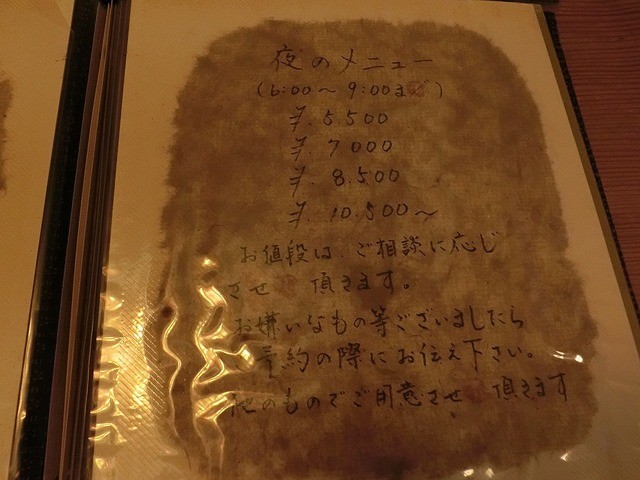 夜のメニュー
(6:00～9:00まで)
¥.5.500
¥.7000
¥.8.500
¥.10.500～
お値段は、ご相談に応じ
させ 頂きます。
お嫌いなもの等ございましたら
予約の際にお伝え下さい。
他のものでご用意させ 頂きます